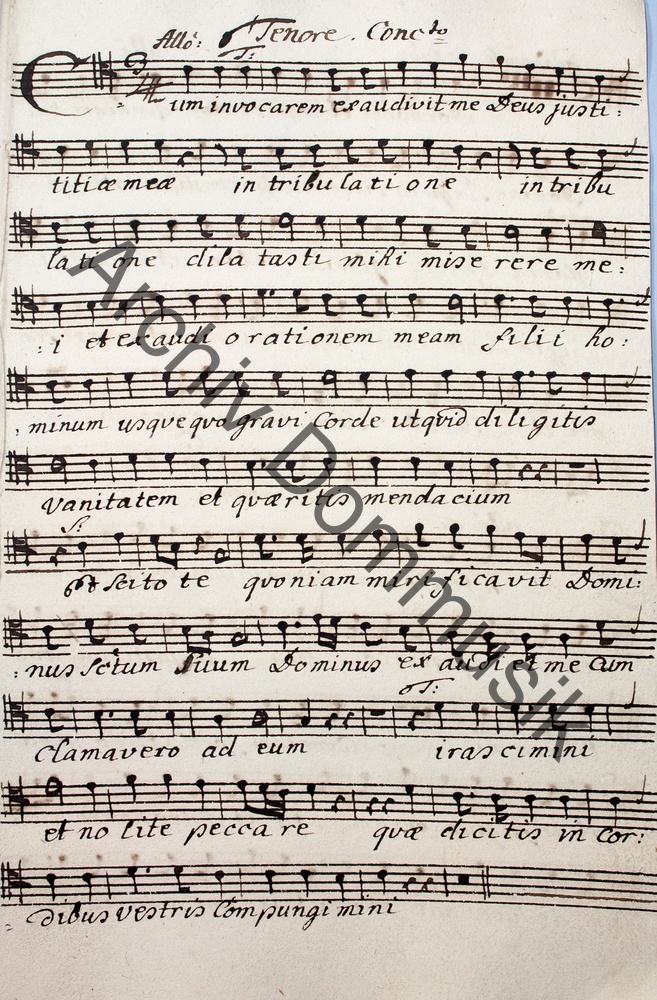 Allo: Tenore. Conc.to
T:
Cum invocarem exaudivit me Deus justi:
titiæ meæ in tribulatione in tribu
latione dilatasti mihi miserere me:
:i et exaudi orationem meam filii ho:
:minum usquequo gravi Corde utqvid diligitis
vanitatem et quæritis mendacium
S:
et scito te qvoniam mirificavit Domi:
:nus sctum suum Dominus exaudiet me Cum
T:
Clamavero ad eum irascimini
et nolite peccare quæ dicitis in Cor:
dibus vestris Compungimini
Archiv Dommusik